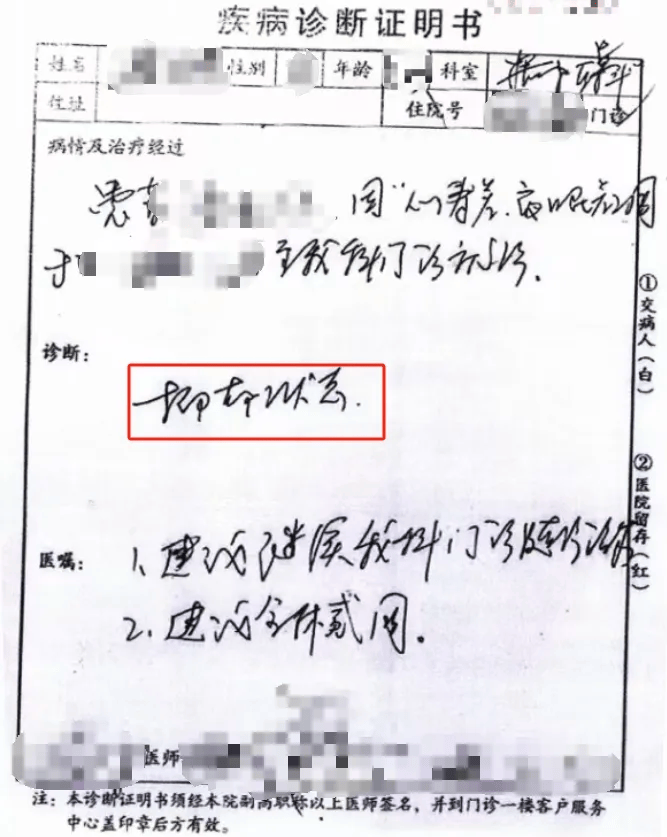 疾病诊断证明书
姓名 性别 年龄 科室
住址 住院号 门诊
病情及治疗经过
患者 因"心情差、夜眠差2周"
于 至我科门诊就诊。
诊断:
抑郁状态.
医嘱: 1、建议继续我科门诊随诊治疗
2、建议全休贰周。
医师
注:本诊断证明书须经本院副高职称以上医师签名,并到门诊一楼客户服务
中心盖印章后方有效。
①交病人(白)
②医院留存(红)